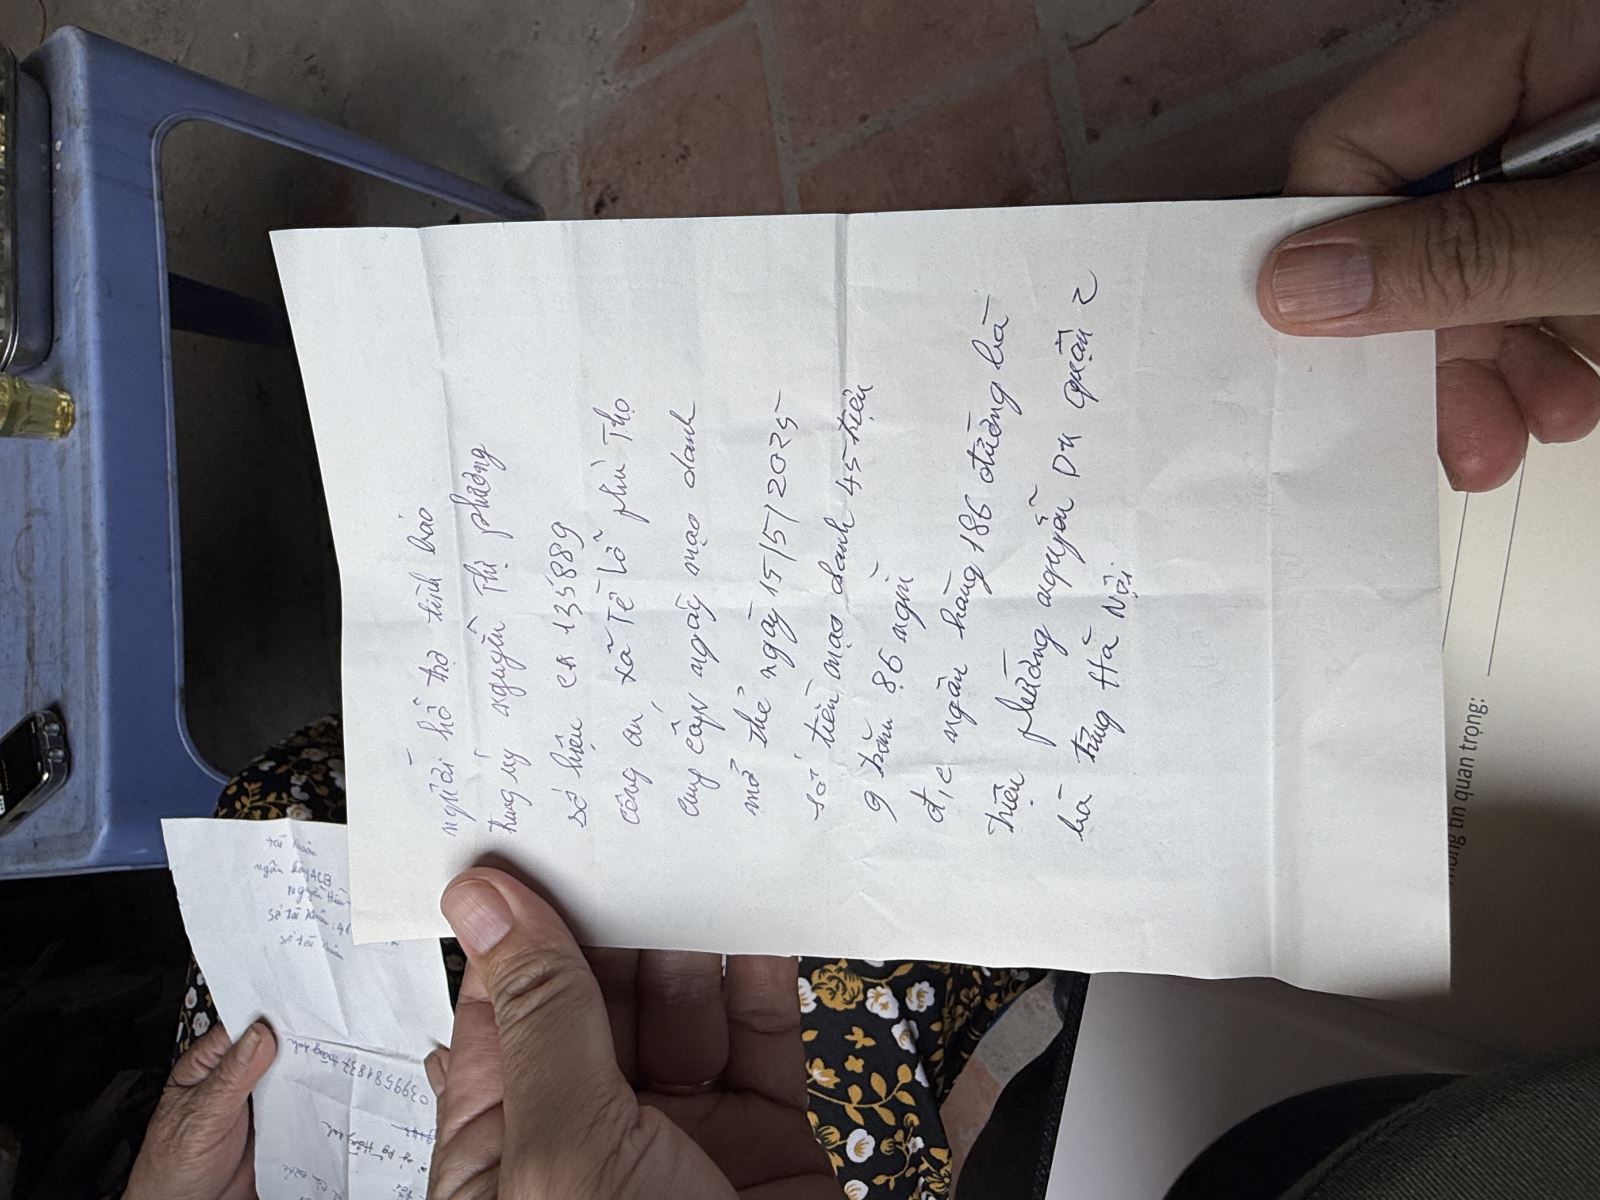 người hỗ trợ tình báo
trung úy nguyễn Thị phương
số hiệu CA 135889
công an, xã Tề Lỗ phú Thọ
cung cấp ngày mạo danh
mở thẻ ngày 15/5/2025
số tiền mạo danh 45 triệu
9 trăm 86 nghì
đ,c ngân hàng 186 đường bà
triệu phường nguyễn Du quận 2
bà trưng Hà Nội
tài khoản
ngân hàng ACB
nguyễn
số tài khoản: 46
số tài khoản
0399581837
thông tin quan trọng: